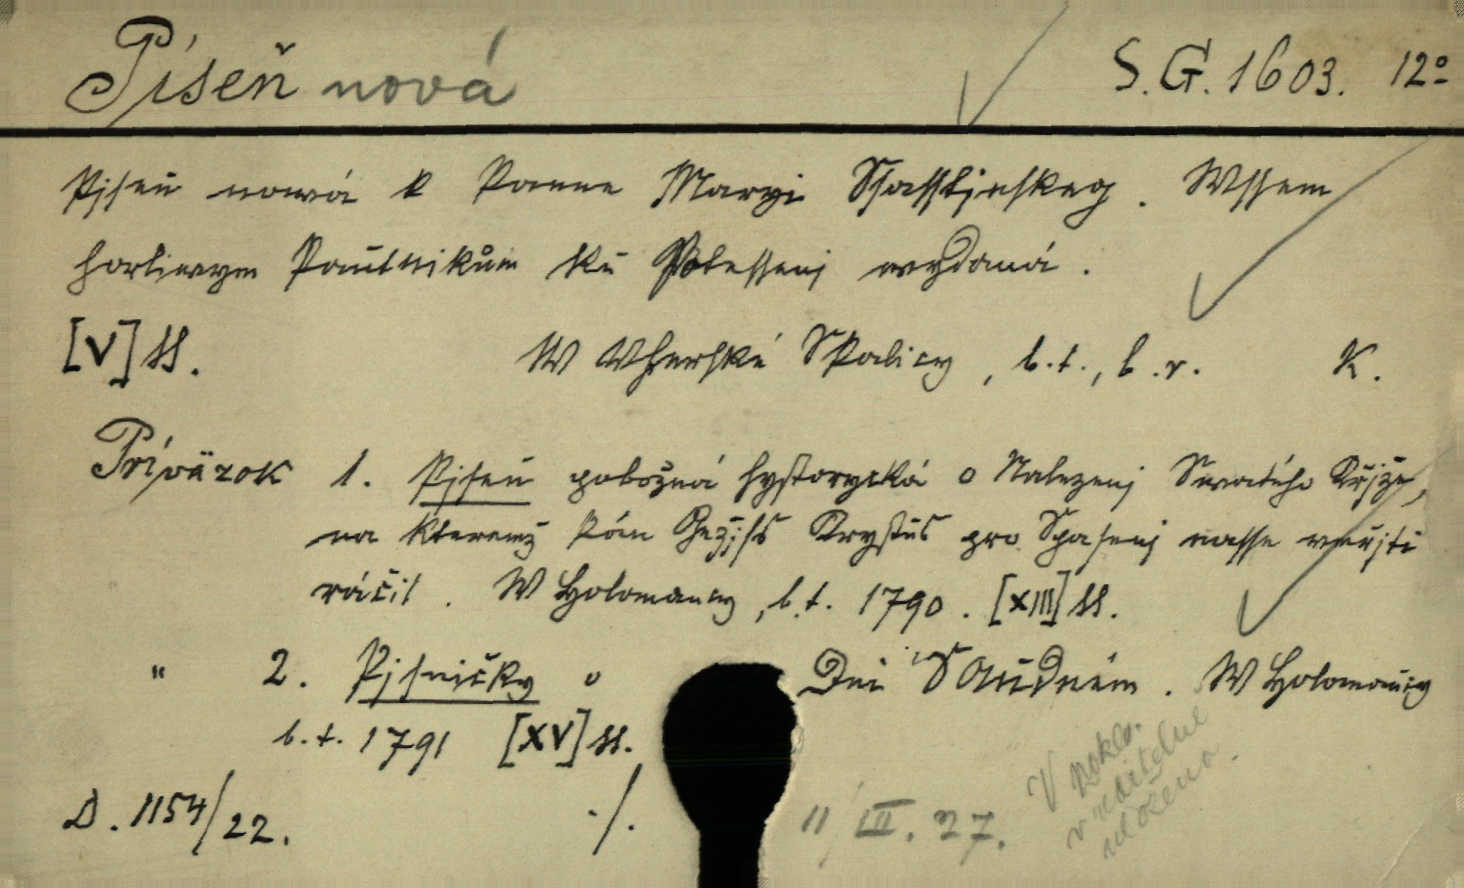 Píseň nová S.G.1603. 12º
Pjseň nowá k Panne Maryi Ssasstjnskeg. Wssem
horliwym Pautnikům ku Potessenj wydaná.
[V] ll. W Vherské Skalicy, b.t., b.r. K.
Príväzok 1. Pjseň pobožná hystorycká o Nalezenj Swatého Křjže,
na kteremž Pán Gežjss Krystus pro Spasenj nasse vmřjti
ráčil. W Holomaucy, b.t. 1790. [XIII] ll.
" 2. Pjsničky o Dni Saudném. W Holomaucy
b.t. 1791 [XV] ll.
D. 1154/22. ./. 11/III. 27.
V pokla.
uloženo.